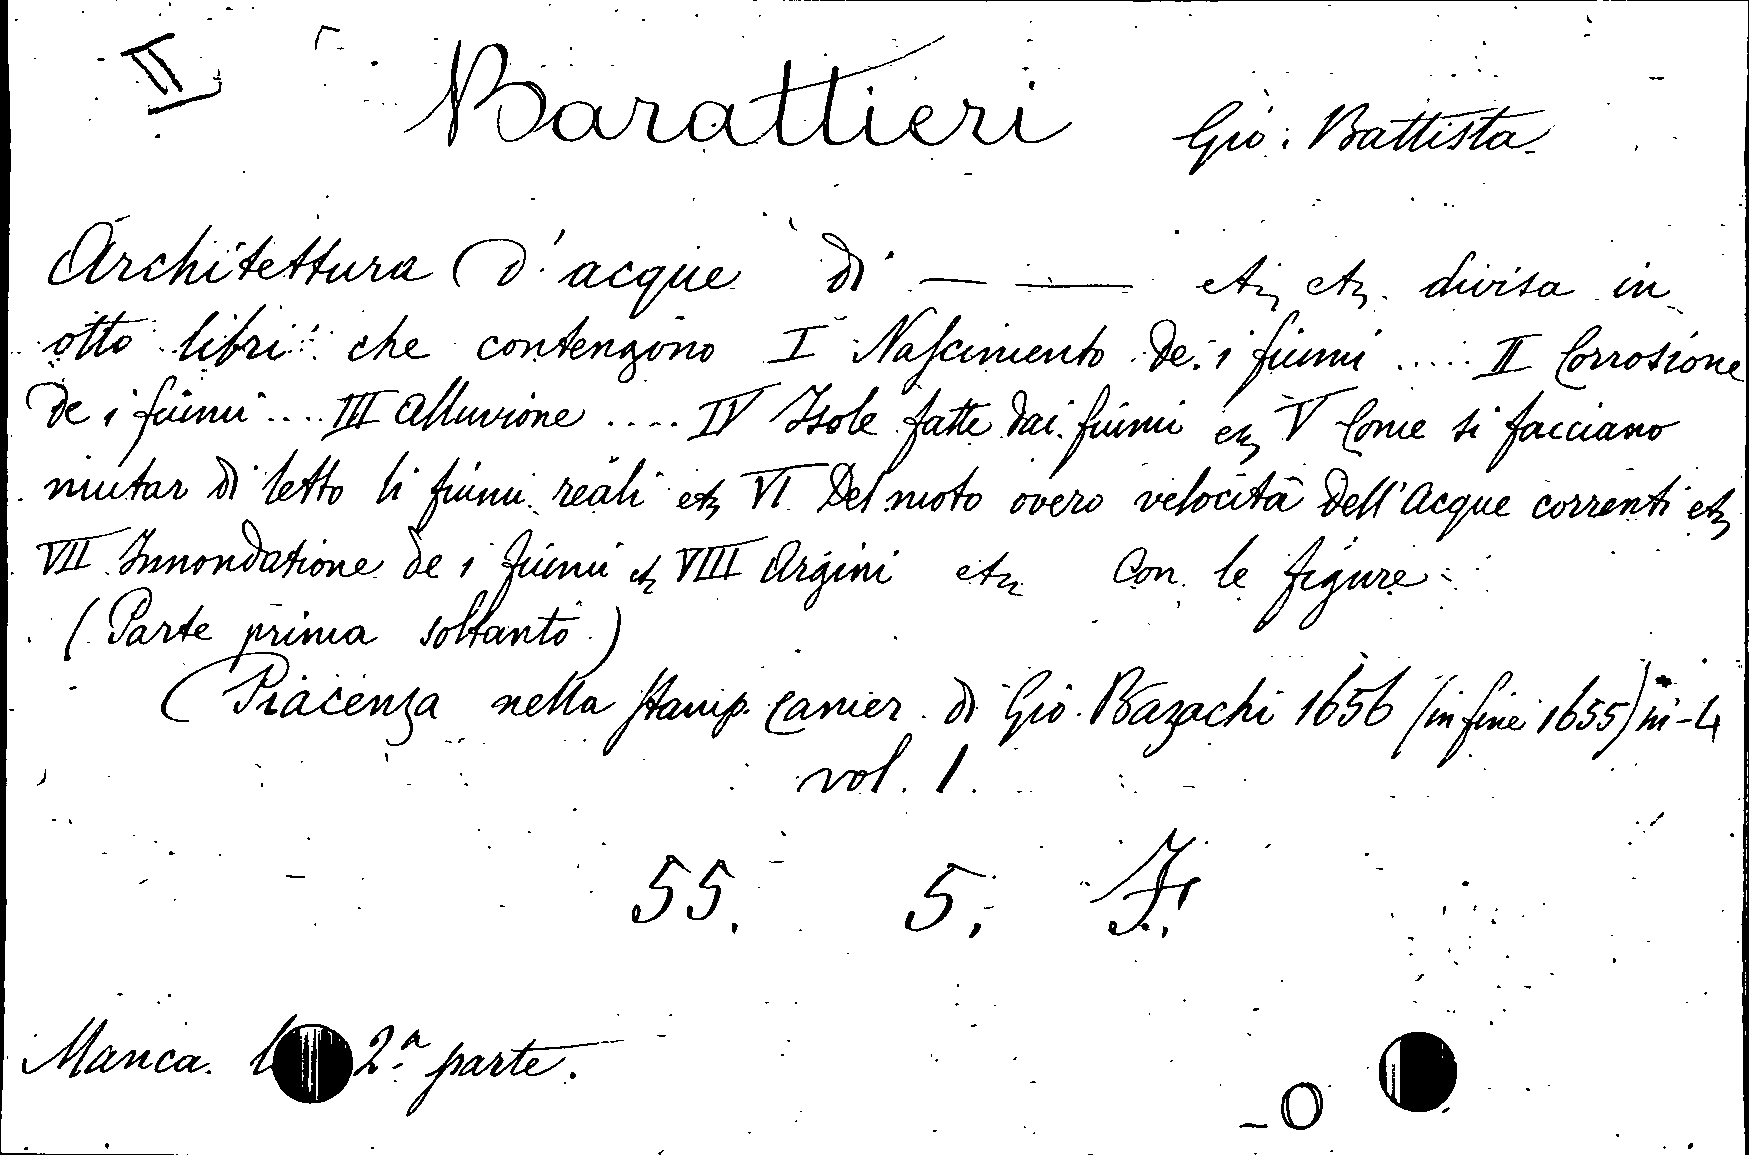 II
Barattieri Gio: Battista
Architettura d'acque di — — etc etc. divisa in
otto libri che contengono I Nascimento de i fiumi .... II Corrosione
de i fiumi .... III Alluvione .... IV Isole fatte dai fiumi etc V Come si facciano
mutar di letto li fiumi reali etc VI Del moto overo velocità dell'Acque correnti etc
VII Innondatione de i fiumi etc VIII Argini etc Con le figure
(Parte prima soltanto)
(Piacenza nella stamp. camer. di Gio. Bazachi 1656 (in fine 1655) in-4
vol. 1.
55. 5. F.
Manca 2ª parte.
-O